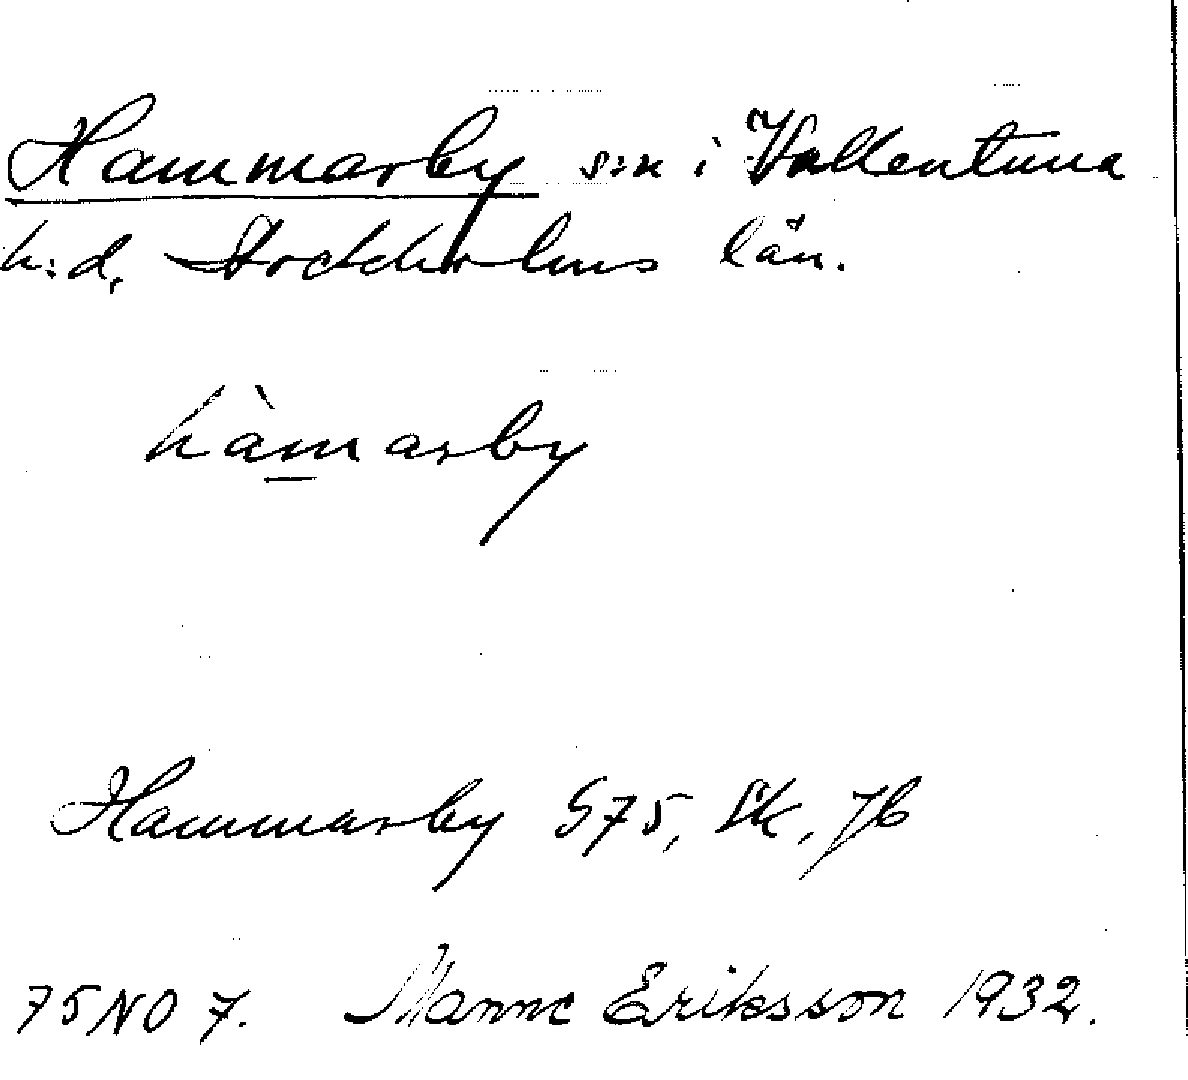 Hammarby s:n i Vallentuna
h:d, Stockholms län.
hàmarby
Hammarby G75, Sk, Jb
75 NO 7. Manne Eriksson 1932.